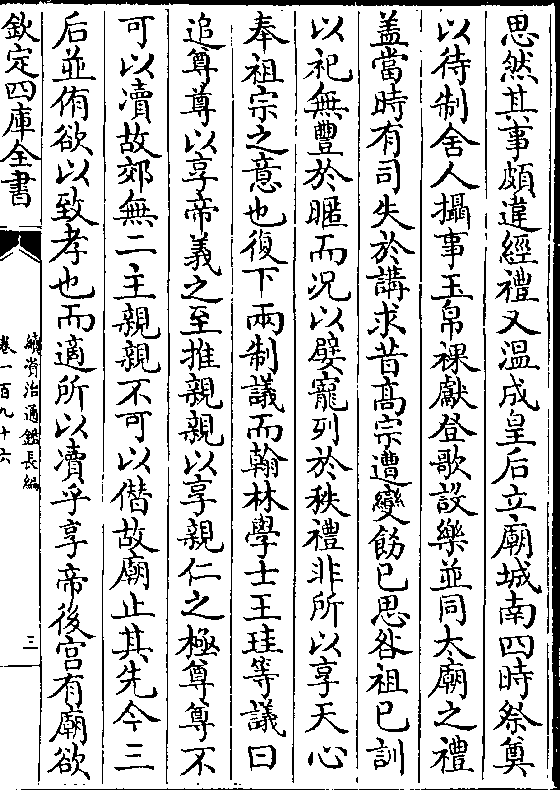 思然其事頗違經禮又溫成皇后立廟城南四時祭奠
以待制舍人攝事玉帛祼獻登歌設樂並同太廟之禮
盖當時有司失於講求昔髙宗遭變飭已思咎祖已訓
以祀無豐於暱而况以嬖寵列於秩禮非所以享天心
奉祖宗之意也復下兩制議而翰林學士王珪等議曰
追尊尊以享帝義之至推親親以享親仁之極尊尊不
可以凟故郊無二主親親不可以僭故廟止其先今三
后並侑欲以致孝也而適所以凟乎享帝後宫有廟欲
欽定四庫全書
續資治通鑑長編
卷一百九十六
三